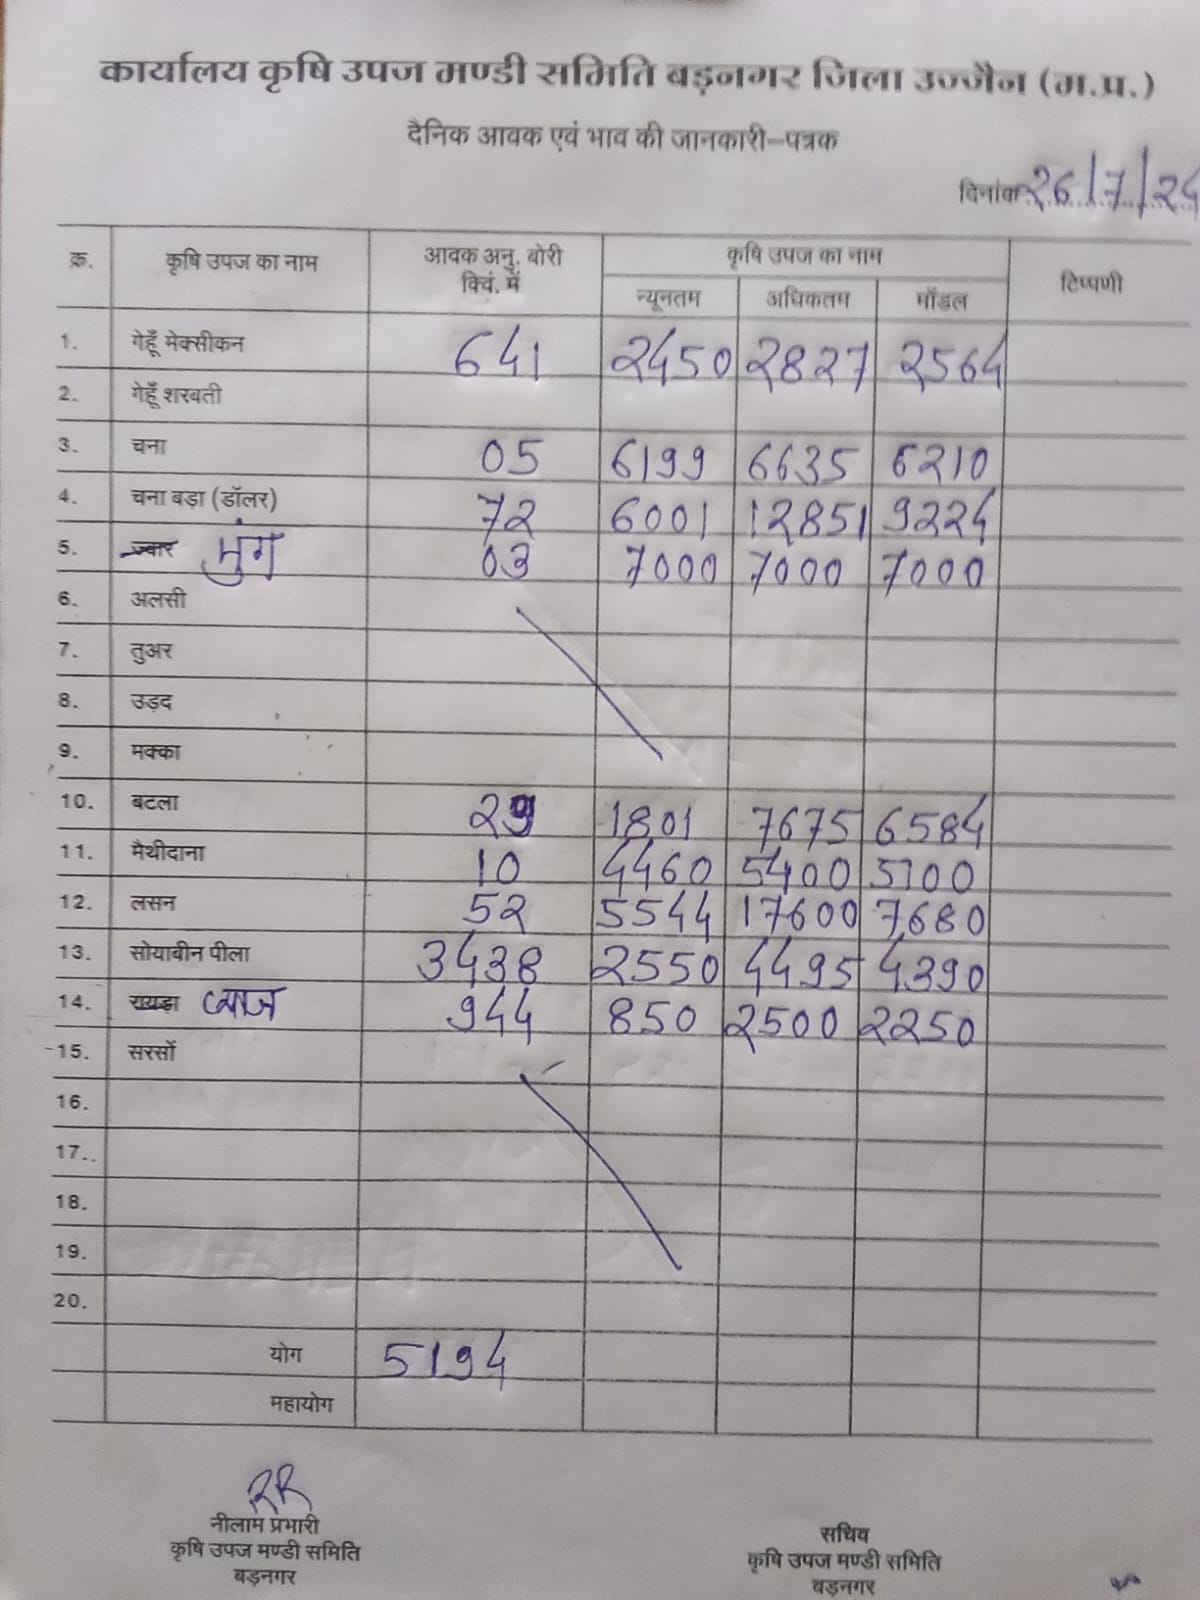 कार्यालय कृषि उपज मण्डी समिति बड़नगर जिला उज्जैन (म.प्र.)
दैनिक आवक एवं भाव की जानकारी–पत्रक
दिनांक 26/7/24
क्र. कृषि उपज का नाम आवक अनु. बोरी क्विं. में कृषि उपज का नाम टिप्पणी
न्यूनतम अधिकतम मॉडल
1. गेहूँ मेक्सीकन 641 2450 2827 2564
2. गेहूँ शरबती
3. चना 05 6199 6635 6210
4. चना बड़ा (डॉलर) 72 6001 12851 9224
5. ज्वार मुंग 03 7000 7000 7000
6. अलसी
7. तुअर
8. उड़द
9. मक्का
10. बटला 29 1801 7675 6584
11. मैथीदाना 10 4460 5400 5100
12. लसन 52 5544 17600 7680
13. सोयाबीन पीला 3438 2550 4495 4390
14. रायड़ा प्याज 944 850 2500 2250
15. सरसों
16.
17.
18.
19.
20.
योग 5194
महायोग
RR
नीलाम प्रभारी
कृषि उपज मण्डी समिति
बड़नगर
सचिव
कृषि उपज मण्डी समिति
बड़नगर